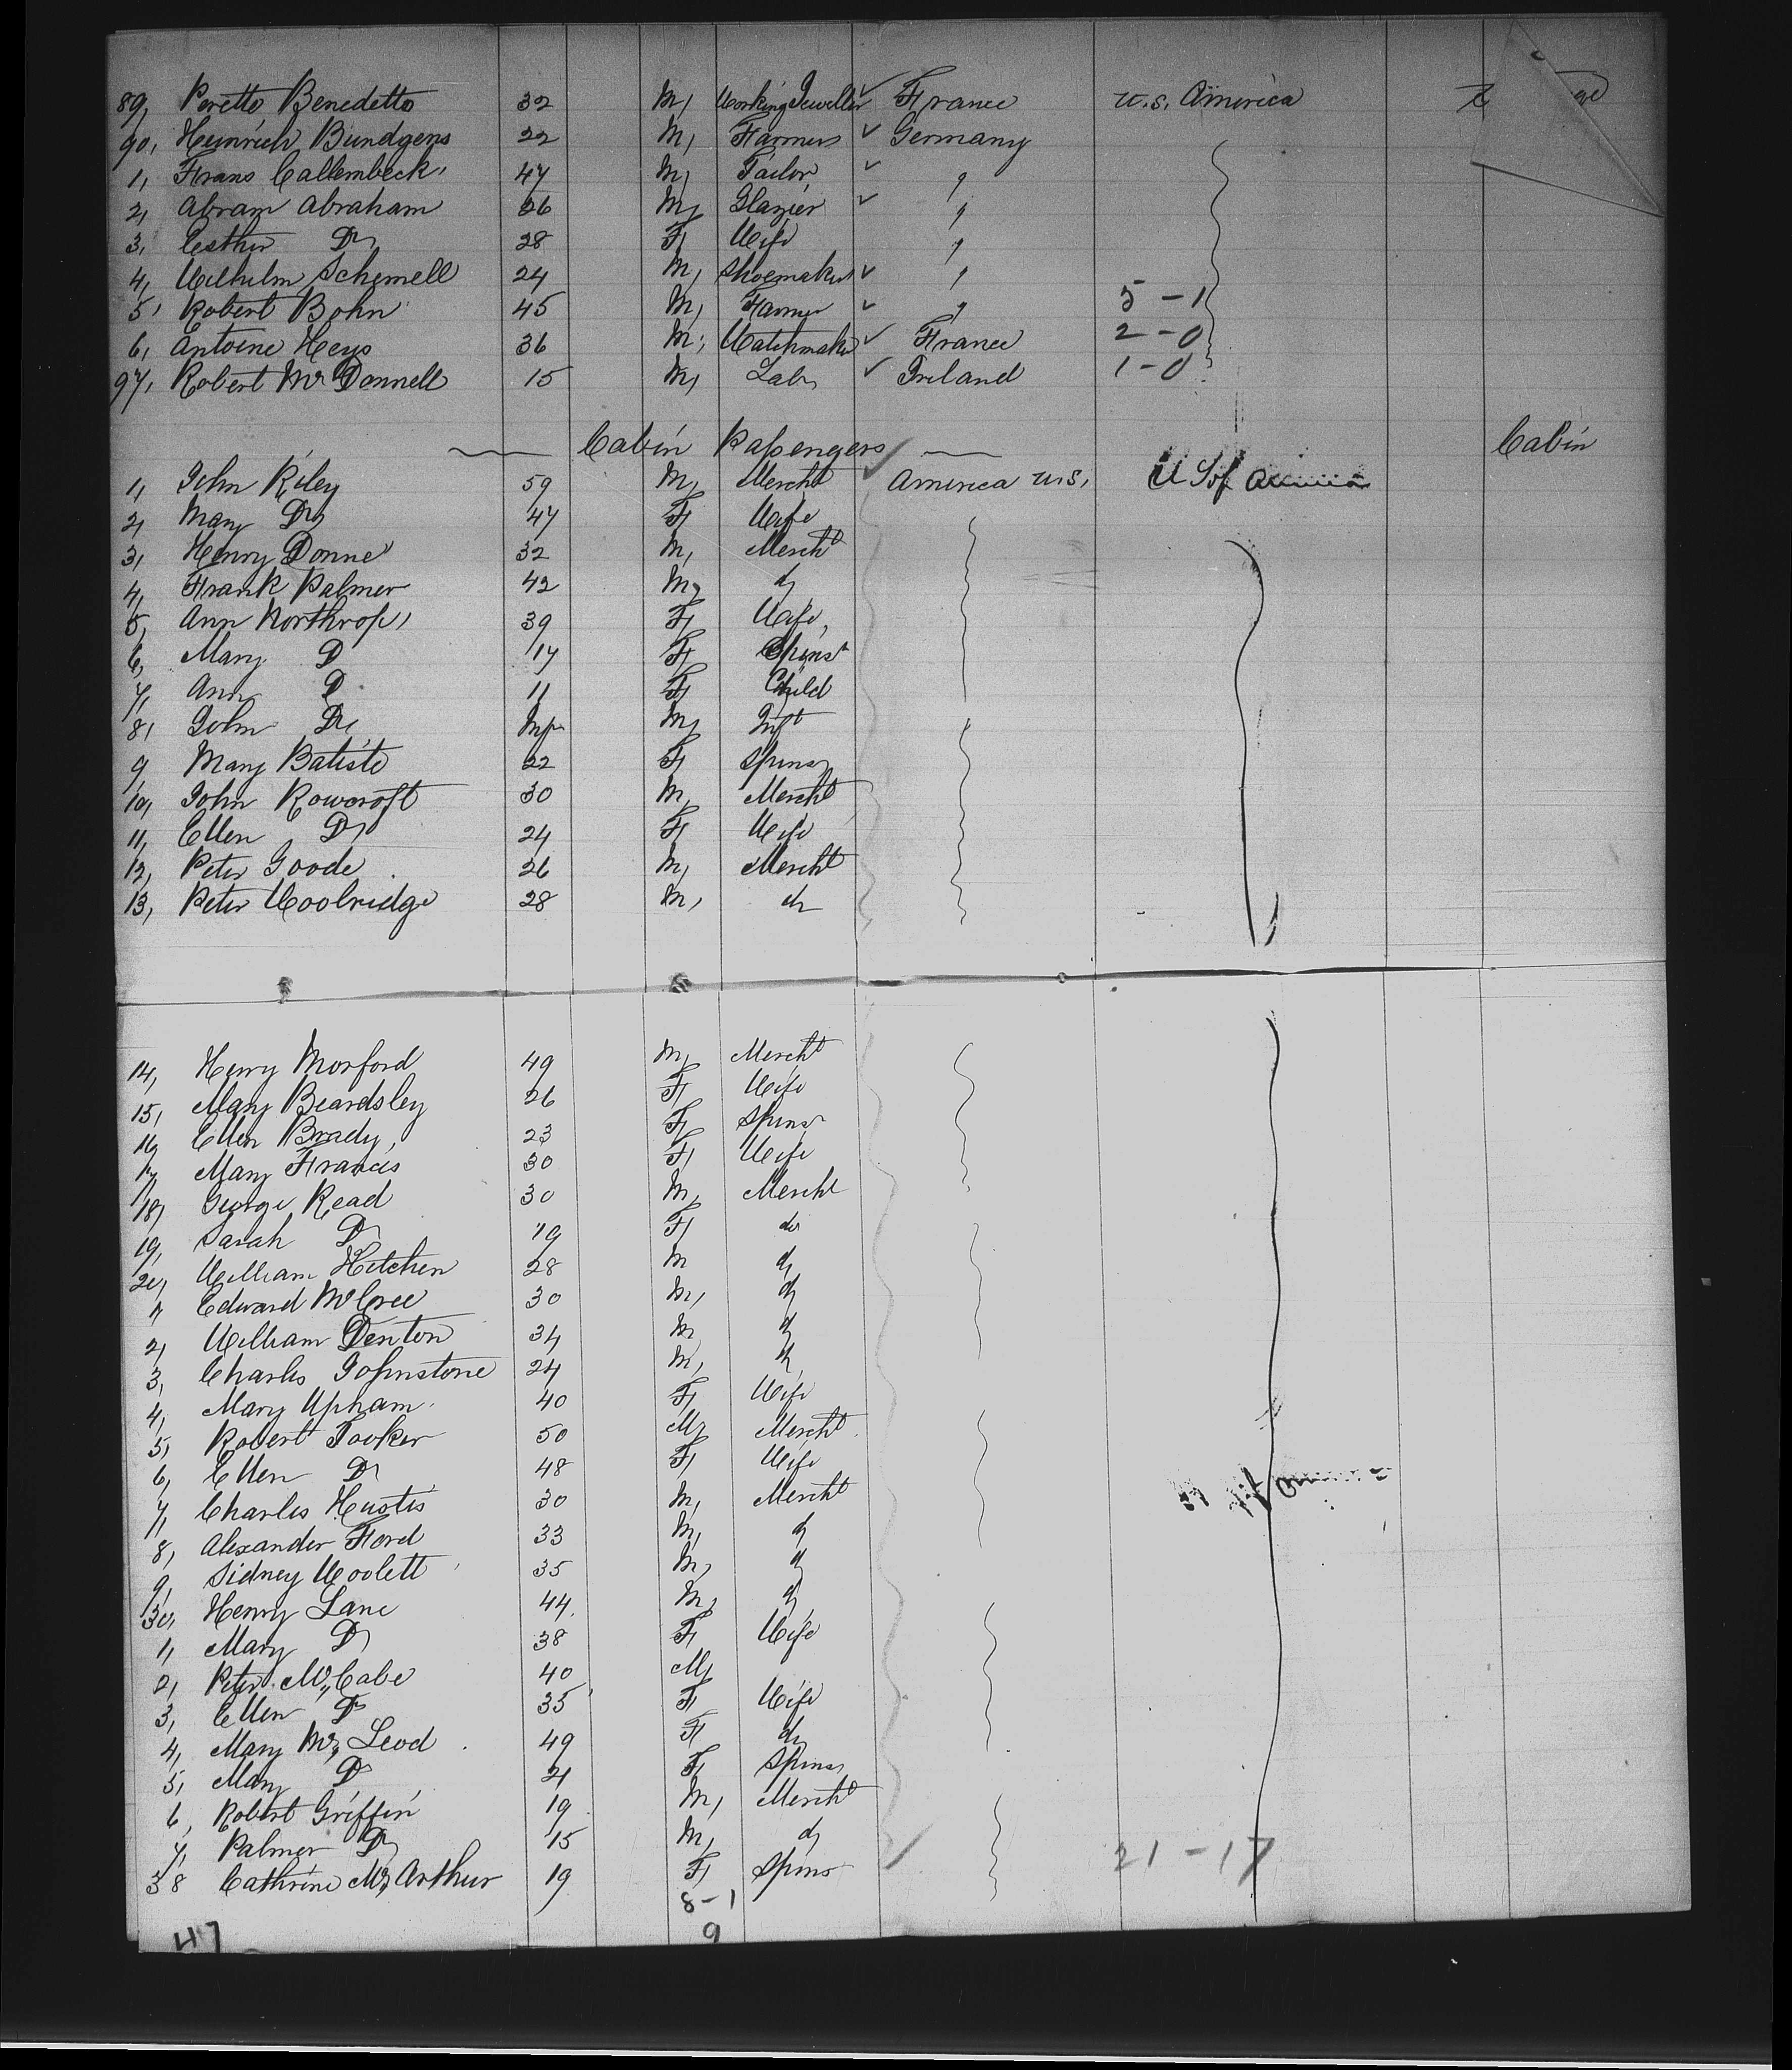 89, Peretto Benedetto 32 M, Working Jeweller ✓ France U.S. America
90, Heinrich Bundgens 22 M, Farmer ✓ Germany
1, Frans Callembeck, 47 M, Tailor ✓ "
2, Abram Abraham 26 M, Glazier ✓ "
3, Esther Do 28 F, Wife "
4, Wilhelm Schemell 24 M, Shoemaker ✓ "
5, Robert Bohn 45 M, Farmer ✓ " 5-1
6, Antoine Heys 36 M, Watchmaker ✓ France 2-0
97, Robert McDonnell 15 M, Labr ✓ Ireland 1-0
Cabin Passengers Cabin
1, John Riley 59 M, Mercht ✓ America U.S. U S of America
2, Mary Do 47 F, Wife
3, Henry Donne 32 M, Mercht
4, Frank Palmer 42 M, do
5, Ann Northrop, 39 F, Wife,
6, Mary D 17 F, Spinst
7, Ann D 11 F, Child
8, John Do, M, Inft
9 Mary Batiste 22 F, Spinsr
10, John Rowcroft 30 M, Mercht
11, Ellen Do 24 F, Wife
12, Peter Goode 26 M, Mercht
13, Peter Woolridge 28 M, do
14, Henry Morford 49 M, Mercht
15, Mary Beardsley 26 F, Wife
16, Ellen Brady, 23 F, Spinsr
17, Mary Francis 30 F, Wife
18, George Read 30 M, Mercht
19, Sarah Do 19 F, do
20, William Hitchen 28 M do
1, Edward McCree 30 M, do
2, William Denton 34 M do
3, Charles Johnstone 24 M, do
4, Mary Upham 40 F, Wife
5, Robert Tooker 50 M, Mercht
6, Ellen Do 48 F, Wife
7, Charles Hustis 30 M, Mercht
8, Alexander Ford 33 M, do
9, Sidney Woolett 35 M, do
30, Henry Lane 44 M, do
1, Mary Do 38 F, Wife
2, Peter McCabe 40 M,
3, Ellen Do 35 F, Wife
4, Mary McLeod 49 F, do
5, Mary Do 21 F, Spinsr
6, Robert Griffin 19 M, Mercht
7, Palmer Do 15 M, do
38 Cathrine McArthur 19 F, Spinsr 21-17
8-1
47 9